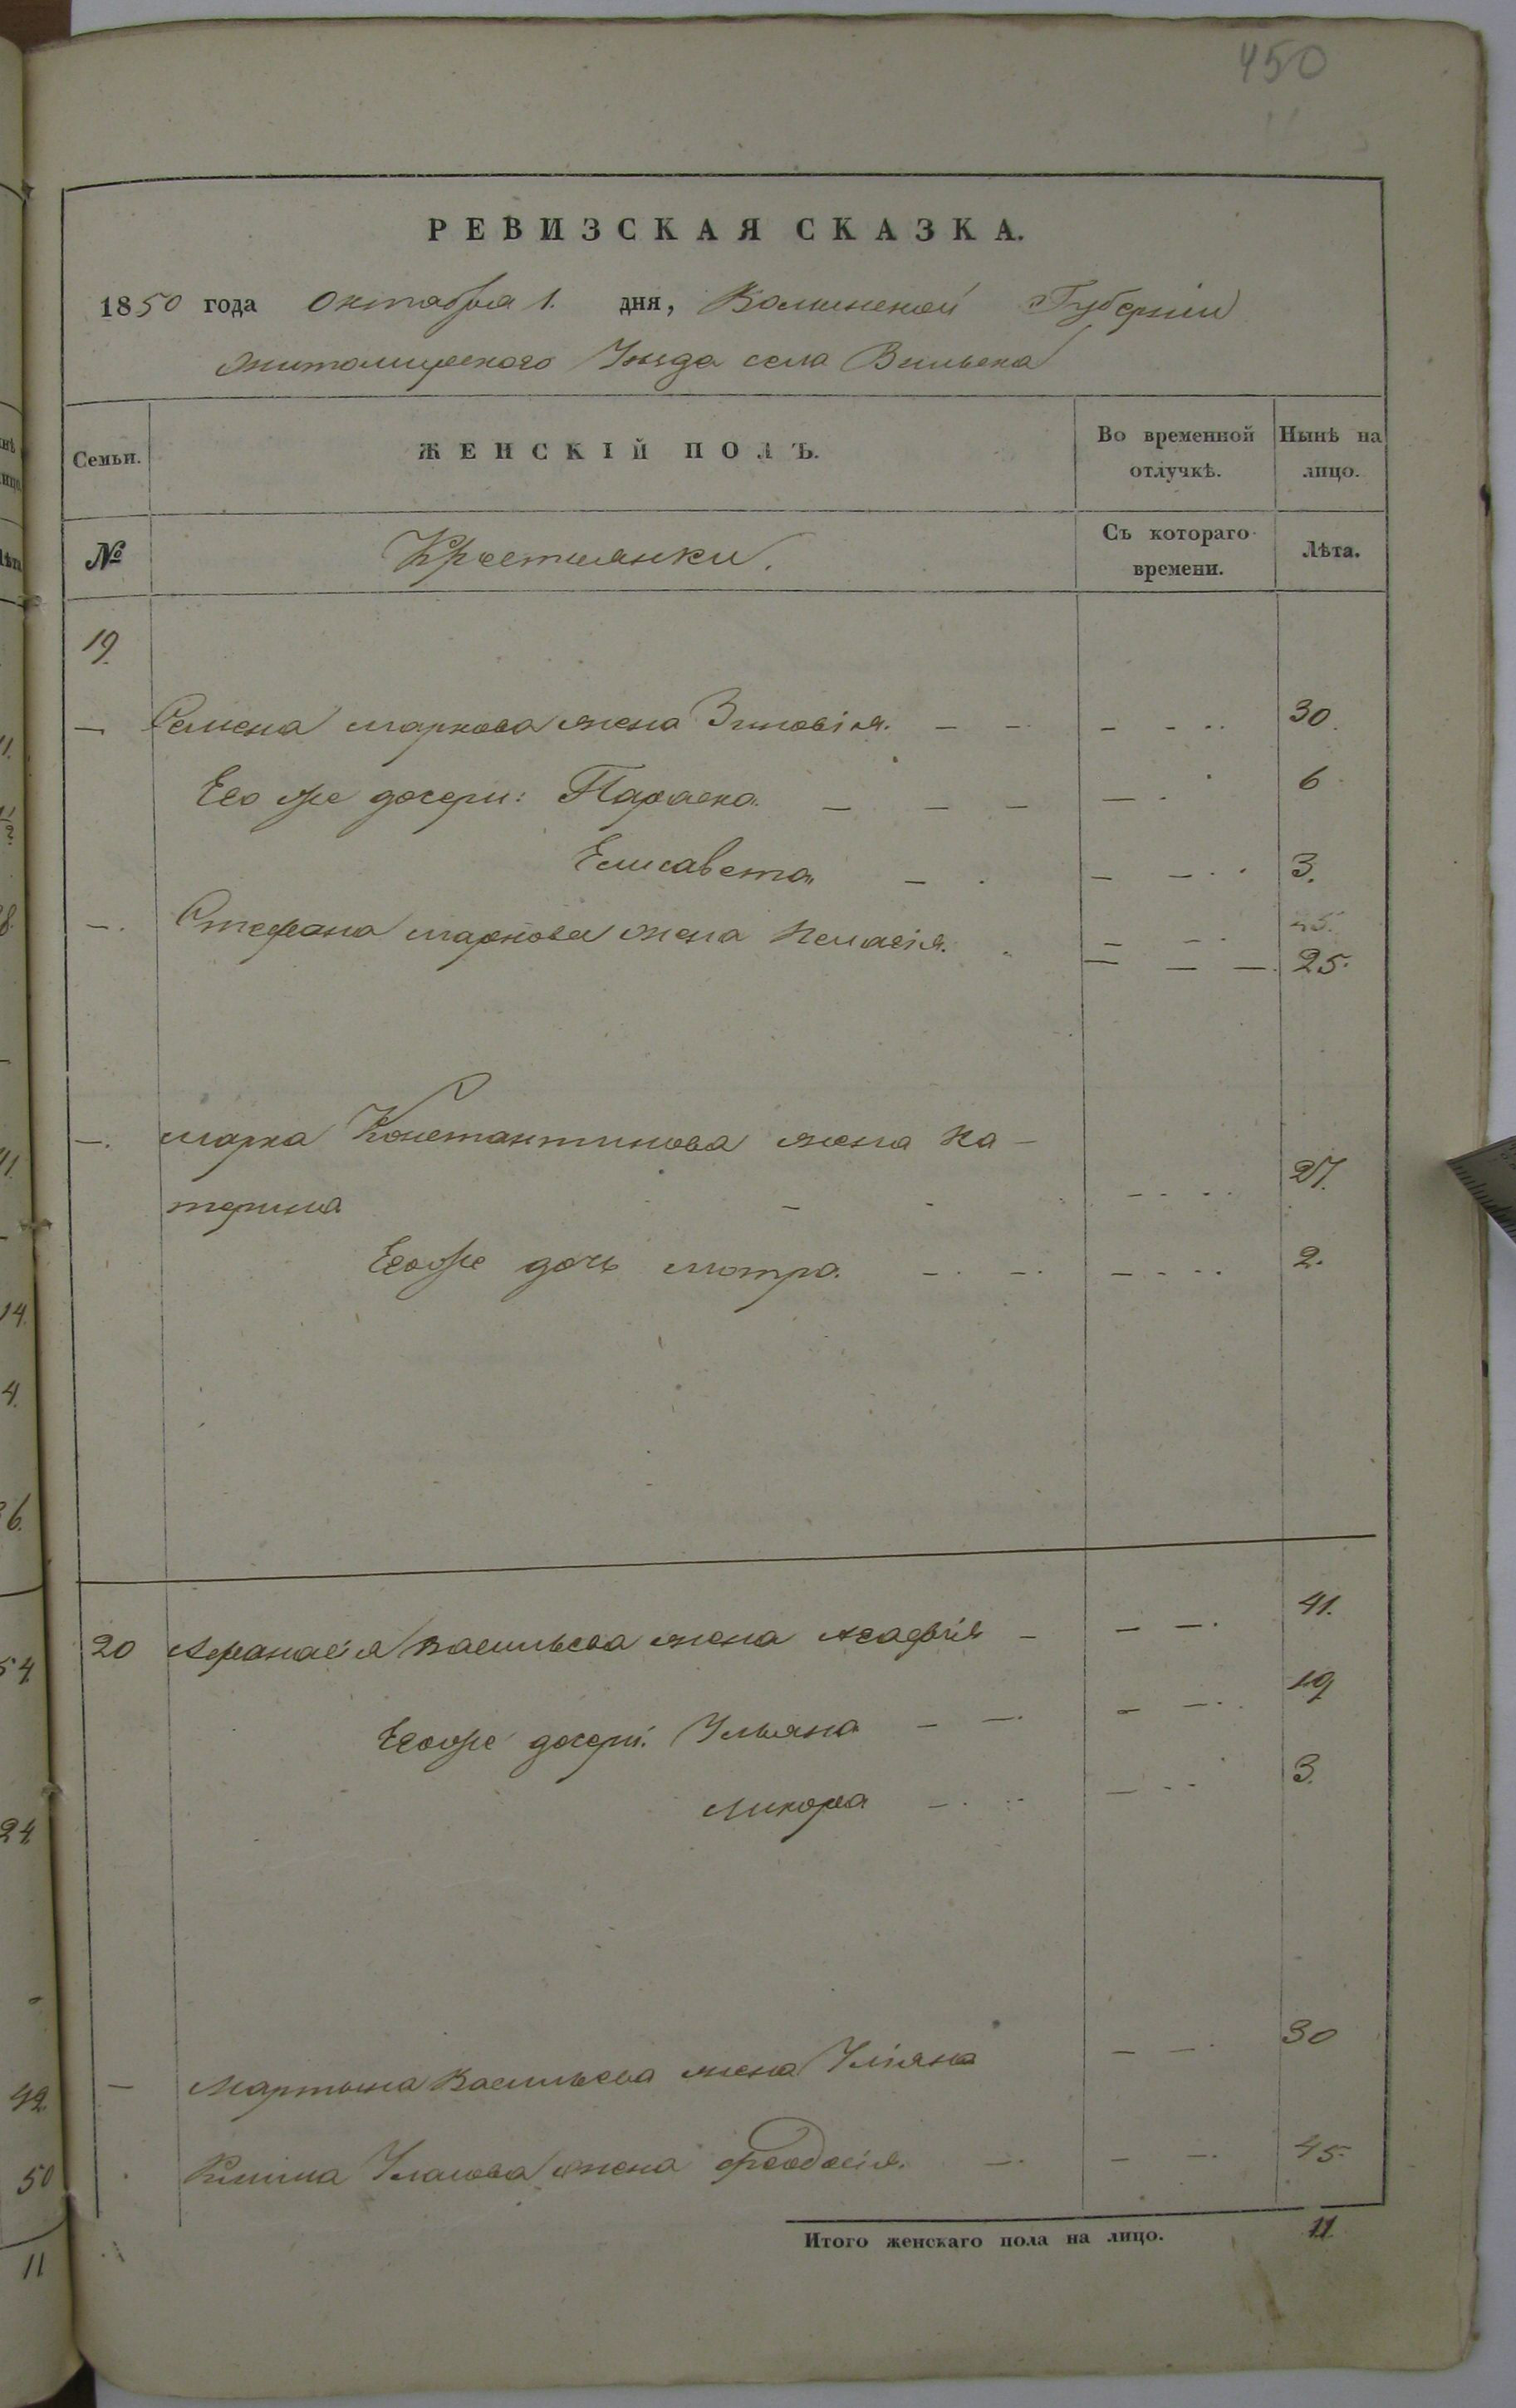 450
РЕВИЗСКАЯ СКАЗКА.
1850 года Октября 1. дня, Волинской Губерніи
Житомирского Уезда села Вильска
Семьи.
ЖЕНСКІЙ ПОЛЪ.
Во временной отлучкѣ.
Нынѣ на лицо.
№
Крестьянки.
Съ котораго времени.
Лѣта.
19.
— Семена Маркова жена Зиновія. — — — - .. 30.
Его же дочери: Параска. — — — — . 6
Елисавета — . — — . . 3.
— . Стефана Маркова жена Пелагія. — — . 25.
— — —. 25.
— . Марка Константинова жена Ка-
терина — - - - . . 27.
Егоже дочь Мотра. — . — . — - . . 2.
20 Афанасія Васильева жена Агафія — — — . 41.
Егоже дочери: Ульяна — — . — — . 19
Ликора — . .. — - - 3.
— Мартына Васильева жена Уліяна — — . 30
Климa Уласова жена Феодосія. — . — — . 45.
Итого женскаго пола на лицо. 11
11.
8.
11.
14.
4.
36.
54.
24.
42.
50
11